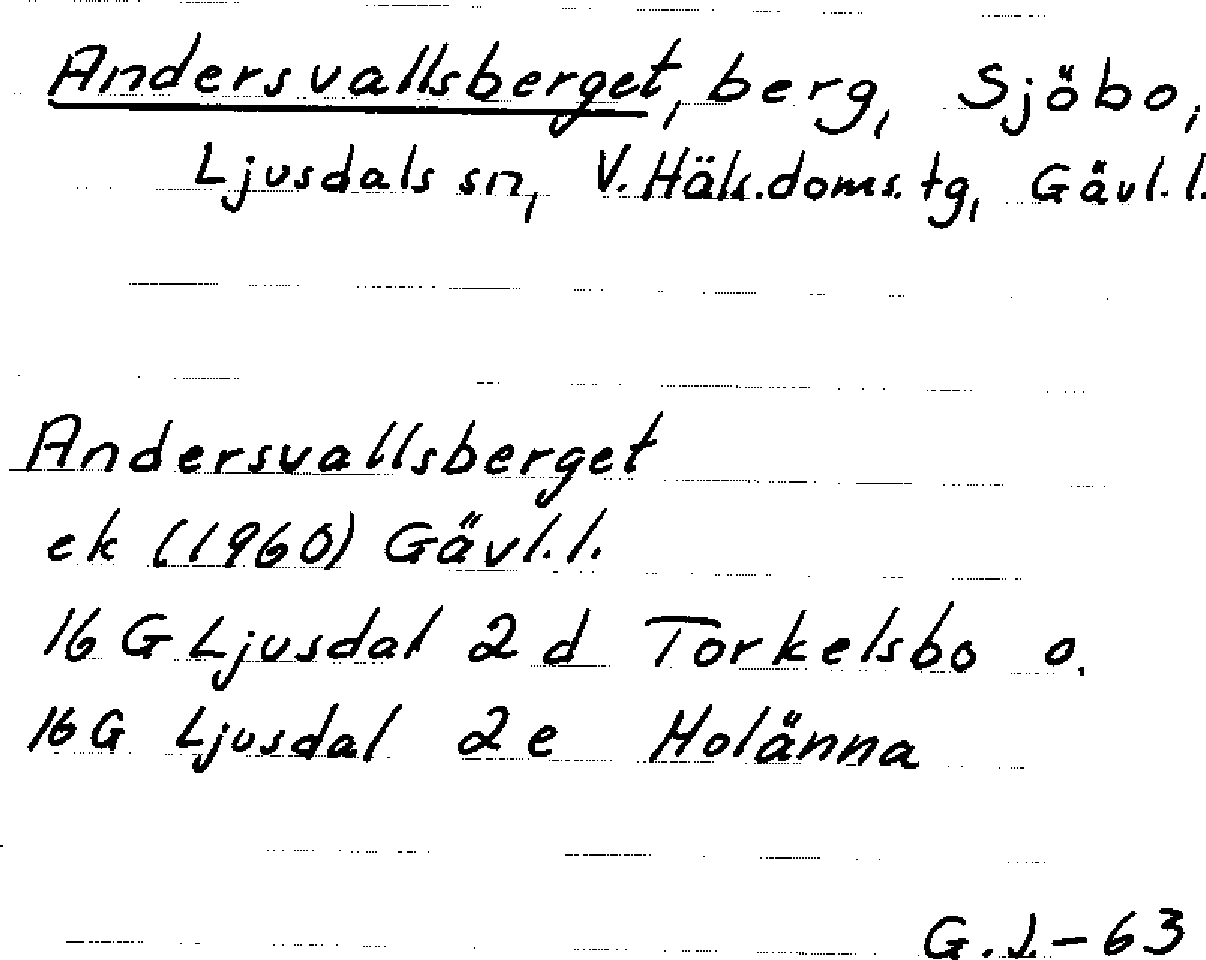 Andersvallsberget, berg, Sjöbo,
Ljusdals sn, V. Häls. doms. tg, Gävl. l.
Andersvallsberget
ek (1960) Gävl. l.
16 G Ljusdal 2 d Torkelsbo o.
16 G Ljusdal 2 e Holänna
G. J. - 63